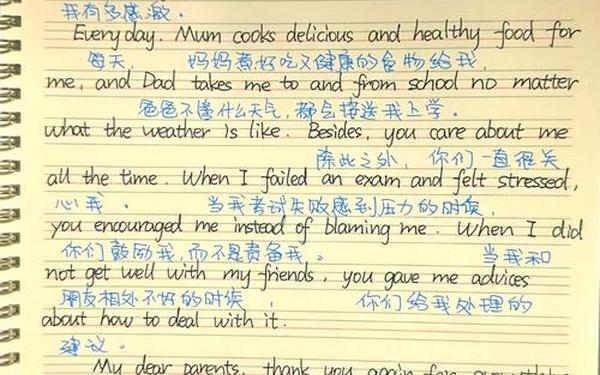 我有多感激.
Every day. Mum cooks delicious and healthy food for
每天, 妈妈煮好吃又健康的食物给我,
me, and Dad takes me to and from school no matter
爸爸不管什么天气, 都会接送我上学。
what the weather is like. Besides, you care about me
除此之外, 你们一直很关
all the time. When I failed an exam and felt stressed,
心我。 当我考试失败感到压力的时候,
you encouraged me instead of blaming me. When I did
你们鼓励我, 而不是责备我。 当我和
not get well with my friends, you gave me advices
朋友相处不好的时候, 你们给我处理的
about how to deal with it.
建议。
My dear parents, thank you again for